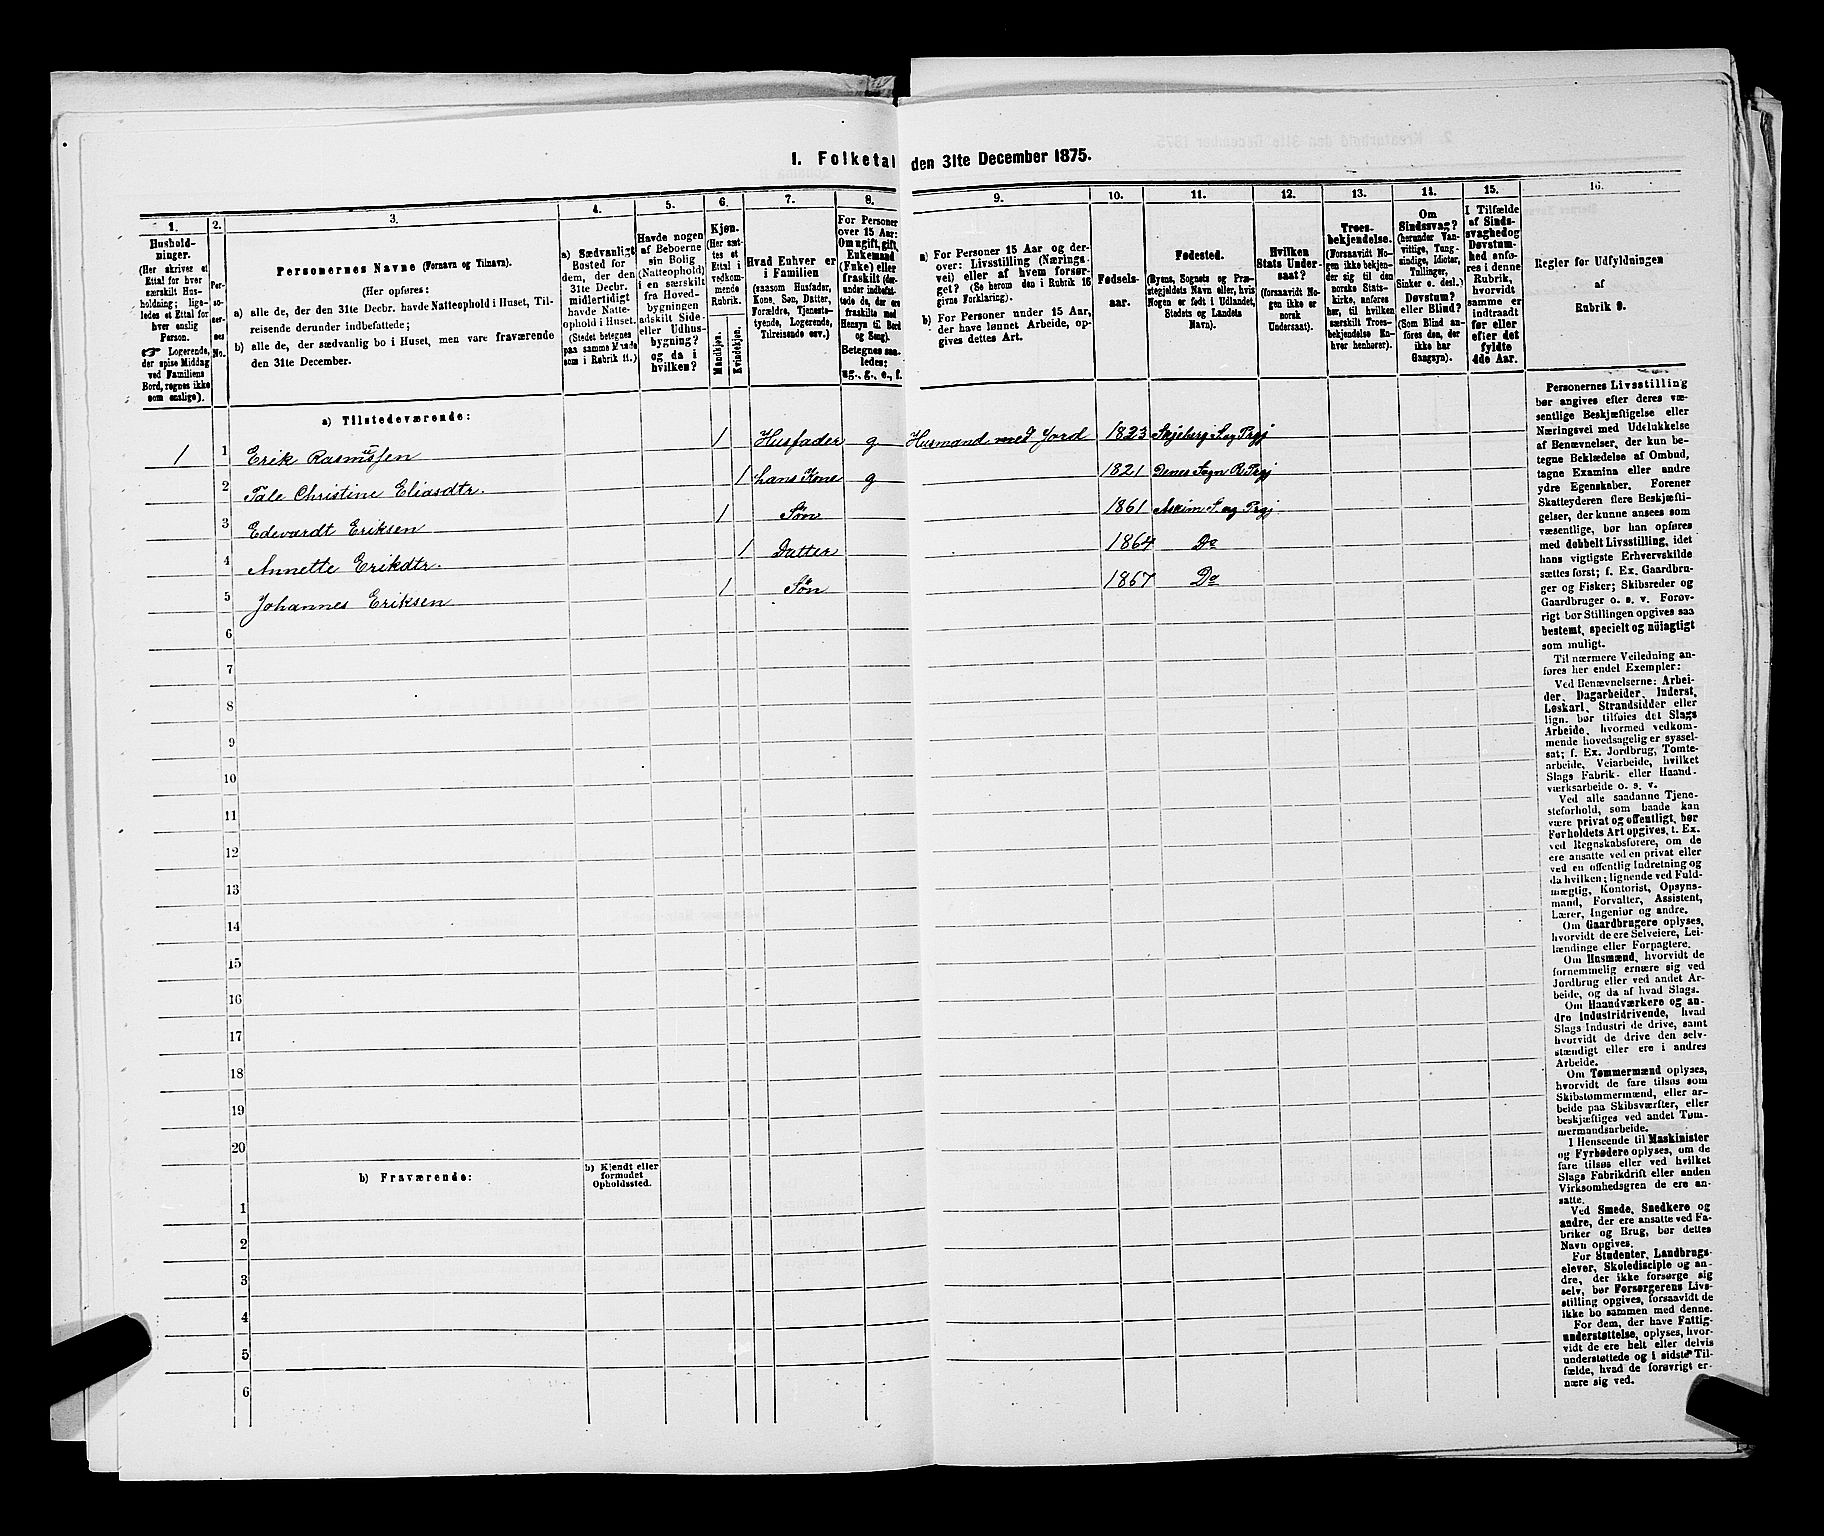 1. Folketal den 31te December 1875.
1.
2.
3.
4.
5.
6.
7.
8.
9.
10.
11.
12.
13.
14.
15.
16.
Husholdninger.
(Her skrives et
Ettal for hver
særskilt Husholdning;
ligeledes et Ettal for
hver enslig
Person.
☞ Logerende,
der spise Middag
ved Familiens
Bord, regnes ikke
som enslige).
Personernes No.
Personernes Navne (Fornavn og Tilnavn).
(Her opføres:
a) alle de, der den 31te Decbr. havde Natteophold i Huset, Tilreisende derunder indbefattede;
b) alle de, der sædvanlig bo i Huset, men vare fraværende
den 31te December.
a) Sædvanligt
Bosted for
dem, der den
31te Decbr.
midlertidigt
havde Natteophold i Huset.
(Stedet betegnes
paa samme Maade
som i Rubrik 11.)
Havde nogen
af Beboerne
sin Bolig
(Natteophold)
i en særskilt
fra Hovedbygningen
adskilt Side-
eller Udhusbygning?
og da i
hvilken?
Kjøn.
(Her sættes et
Ettal i
vedkommende
Rubrik.
Mandkjøn.
Kvindekjøn.
Hvad Enhver er
i Familien
(saasom Husfader,
Kone, Søn, Datter,
Forældre, Tjenestetyende, Logerende,
Tilreisende osv.)
For Personer
over 15 Aar:
Om ugift, gift,
Enkemand
(Enke) eller
fraskilt (derunder indbefattede de, der ere
fraskilte med
Hensyn til Bord
og Seng).
Betegnes saaledes:
ug., g., e., f.
a) For Personer 15 Aar og derover: Livsstilling (Næringsvei) eller af hvem forsørget? (Se herom den i Rubrik 16
givne Forklaring).
b) For Personer under 15 Aar,
der have lønnet Arbeide, opgives dettes Art.
Fødselsaar.
Fødested.
(Byens, Sognets og Præstegjeldets Navn eller, hvis
Nogen er født i Udlandet,
Stedets og Landets
Navn).
Hvilken
Stats Undersaat?
(forsaavidt Nogen ikke er
norsk
Undersaat).
Troesbekjendelse.
(Forsaavidt Nogen ikke bekjender sig til den
norske Statskirke, anføres
her, til hvilken
særskilt Troesbekjendelse Enhver henhører).
Om
Sindssvag?
(herunder Vanvittige, Tungsindige, Idioter,
Tullinger,
Sinker o. desl.)
Døvstum?
eller Blind?
(Som Blind anføres den, der
ikke har
Gangsyn).
I Tilfælde
af Sindssvaghed og
Døvstumhed anføres i denne
Rubrik,
hvorvidt
samme er
indtraadt
før eller
efter det
fyldte
4de Aar.
Regler for Udfyldningen
af
Rubrik 9.
a) Tilstedeværende:
1 1 Erik Rasmussen 1 Husfader g Husmand med Jord 1823 Skjeberg S. og Prgj
2 Tale Christine Eliasdtr. 1 hans Kone g 1821 Denes Sogn R. Prgj
3 Edevardt Eriksen 1 Søn 1861 Askim S. og Prgj
4 Annette Erikdtr. 1 Datter 1864 Do
5 Johannes Eriksen 1 Søn 1867 Do
6
7
8
9
10
11
12
13
14
15
16
17
18
19
20
b) Fraværende:
b) Kjendt eller
formodet
Opholdssted.
1
2
3
4
5
6
Personernes Livsstilling
bør angives efter deres væsentlige Beskjæftigelse eller
Næringsvei med Udelukkelse
af Benævnelser, der kun betegne Beklædelse af Ombud,
tagne Examina eller andre
ydre Egenskaber. Forener
Skatteyderen flere Beskjæftigelser, der kunne ansees som
væsentlige, bør han opføres
med dobbelt Livsstilling, idet
hans vigtigste Erhvervskilde
sættes først; f. Ex. Gaardbruger og Fisker; Skibsreder og
Gaardbruger o. s. v. Forøvrigt bør Stillingen opgives saa
bestemt, specielt og nöiagtigt
som muligt.
Til nærmere Veiledning anføres her endel Exempler:
Ved Benævnelserne: Arbeider, Dagarbeider, Inderst,
Løskarl, Strandsidder eller
lign. bør tilføies det Slags
Arbeide, hvormed vedkommende hovedsagelig er sysselsat; f. Ex. Jordbrug, Tomtearbeide, Veiarbeide, hvilket
Slags Fabrik- eller Haandværksarbeide o. s. v.
Ved alle saadanne Tjenesteforhold, som baade kan
være privat og offentligt, bør
Forholdets Art opgives, t. Ex.
ved Regnskabsførere, om de
ere ansatte ved en privat eller
ved en offentlig Indretning og
da hvilken; lignende ved Fuldmægtig, Kontorist, Opsynsmand, Forvalter, Assistent,
Lærer, Ingeniør og andre.
Om Gaardbrugere oplyses,
hvorvidt de ere Selveiere, Leilændinge eller Forpagtere.
Om Husmænd, hvorvidt de
fornemmelig ernære sig ved
Jordbrug eller ved andet Arbeide, og da af hvad Slags.
Om Haandværkere og andre Industridrivende, hvad
Slags Industri de drive, samt
hvorvidt de drive den selvstændigt eller ere i andres
Arbeide.
Om Tømmermænd oplyses,
hvorvidt de fare tilsøs som
Skibstømmermænd, eller arbeide paa Skibsværfter, eller
beskjæftiges ved andet Tømmermandsarbeide.
I Henseende til Maskinister
og Fyrbødere oplyses, om de
fare tilsøs eller ved hvilket
Slags Fabrikdrift eller anden
Virksomhedsgren de ere ansatte.
Ved Smede, Snedkere og
andre, der ere ansatte ved Fabriker og Brug, bør dettes
Navn opgives.
For Studenter, Landbrugselever, Skoledisciple og andre, der ikke forsørge sig
selv, bør Forsørgerens Livsstilling opgives, forsaavidt de
ikke bo sammen med denne.
For dem, der have Fattigunderstøttelse, oplyses, hvorvidt de ere helt eller delvis
understøttede og i sidste Tilfælde, hvad de forøvrigt ernære sig ved.